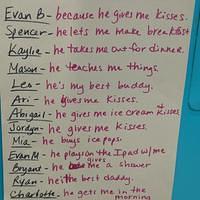 Evan B- because he gives me kisses.
Spencer- he lets me make breakfast
Kaylie- he takes me out for dinner.
Mason- he teaches me things.
Lea- he's my best buddy.
Ari- he gives me kisses.
Abigail- he gives me ice cream & kisses
Jordyn- he gives me kisses.
Mia- he buys ice pops.
Evan M- he plays on the Ipad w/me
Bryant- he gives me a shower
Ryan- he's the best daddy.
Charlotte- he gets me in the
morning